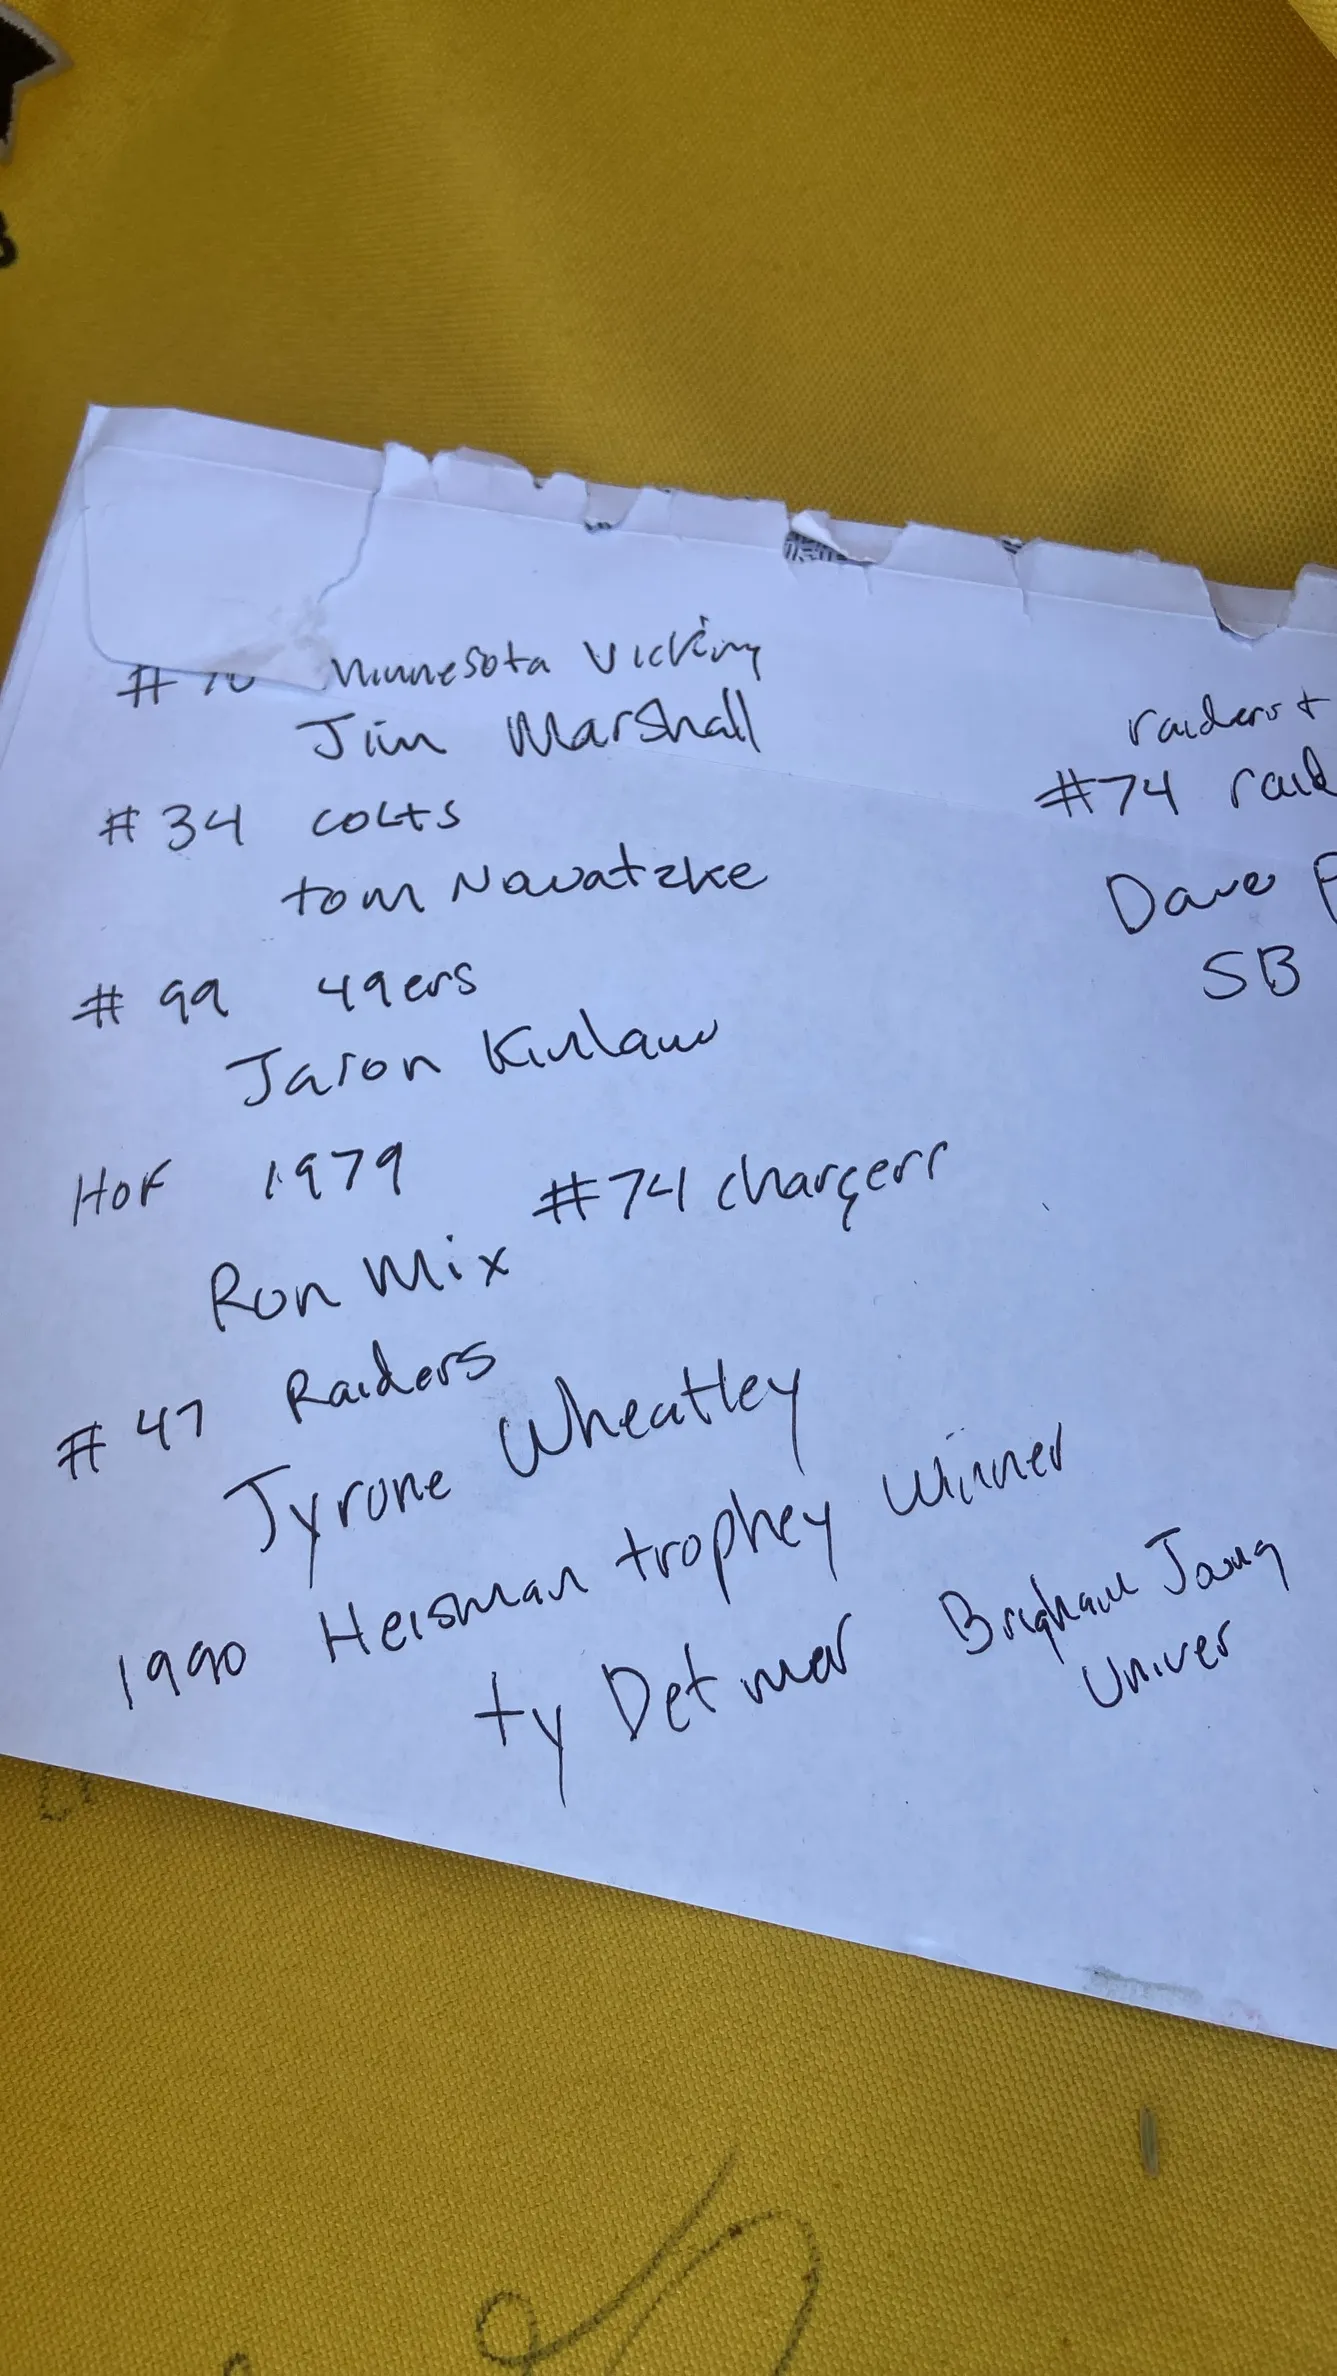 # 70 Minnesota Vicking
Jim Marshall
# 34 colts
tom Nowatzke
# 99 49ers
Jason Kinlaw
HOF 1979 #74 chargerr
Ron Mix
# 47 Raiders
Tyrone Wheatley
1990 Heisman trophey winner
ty Detmer Brigham Joung
Univer
raiders +
#74 raid
Dave P
SB